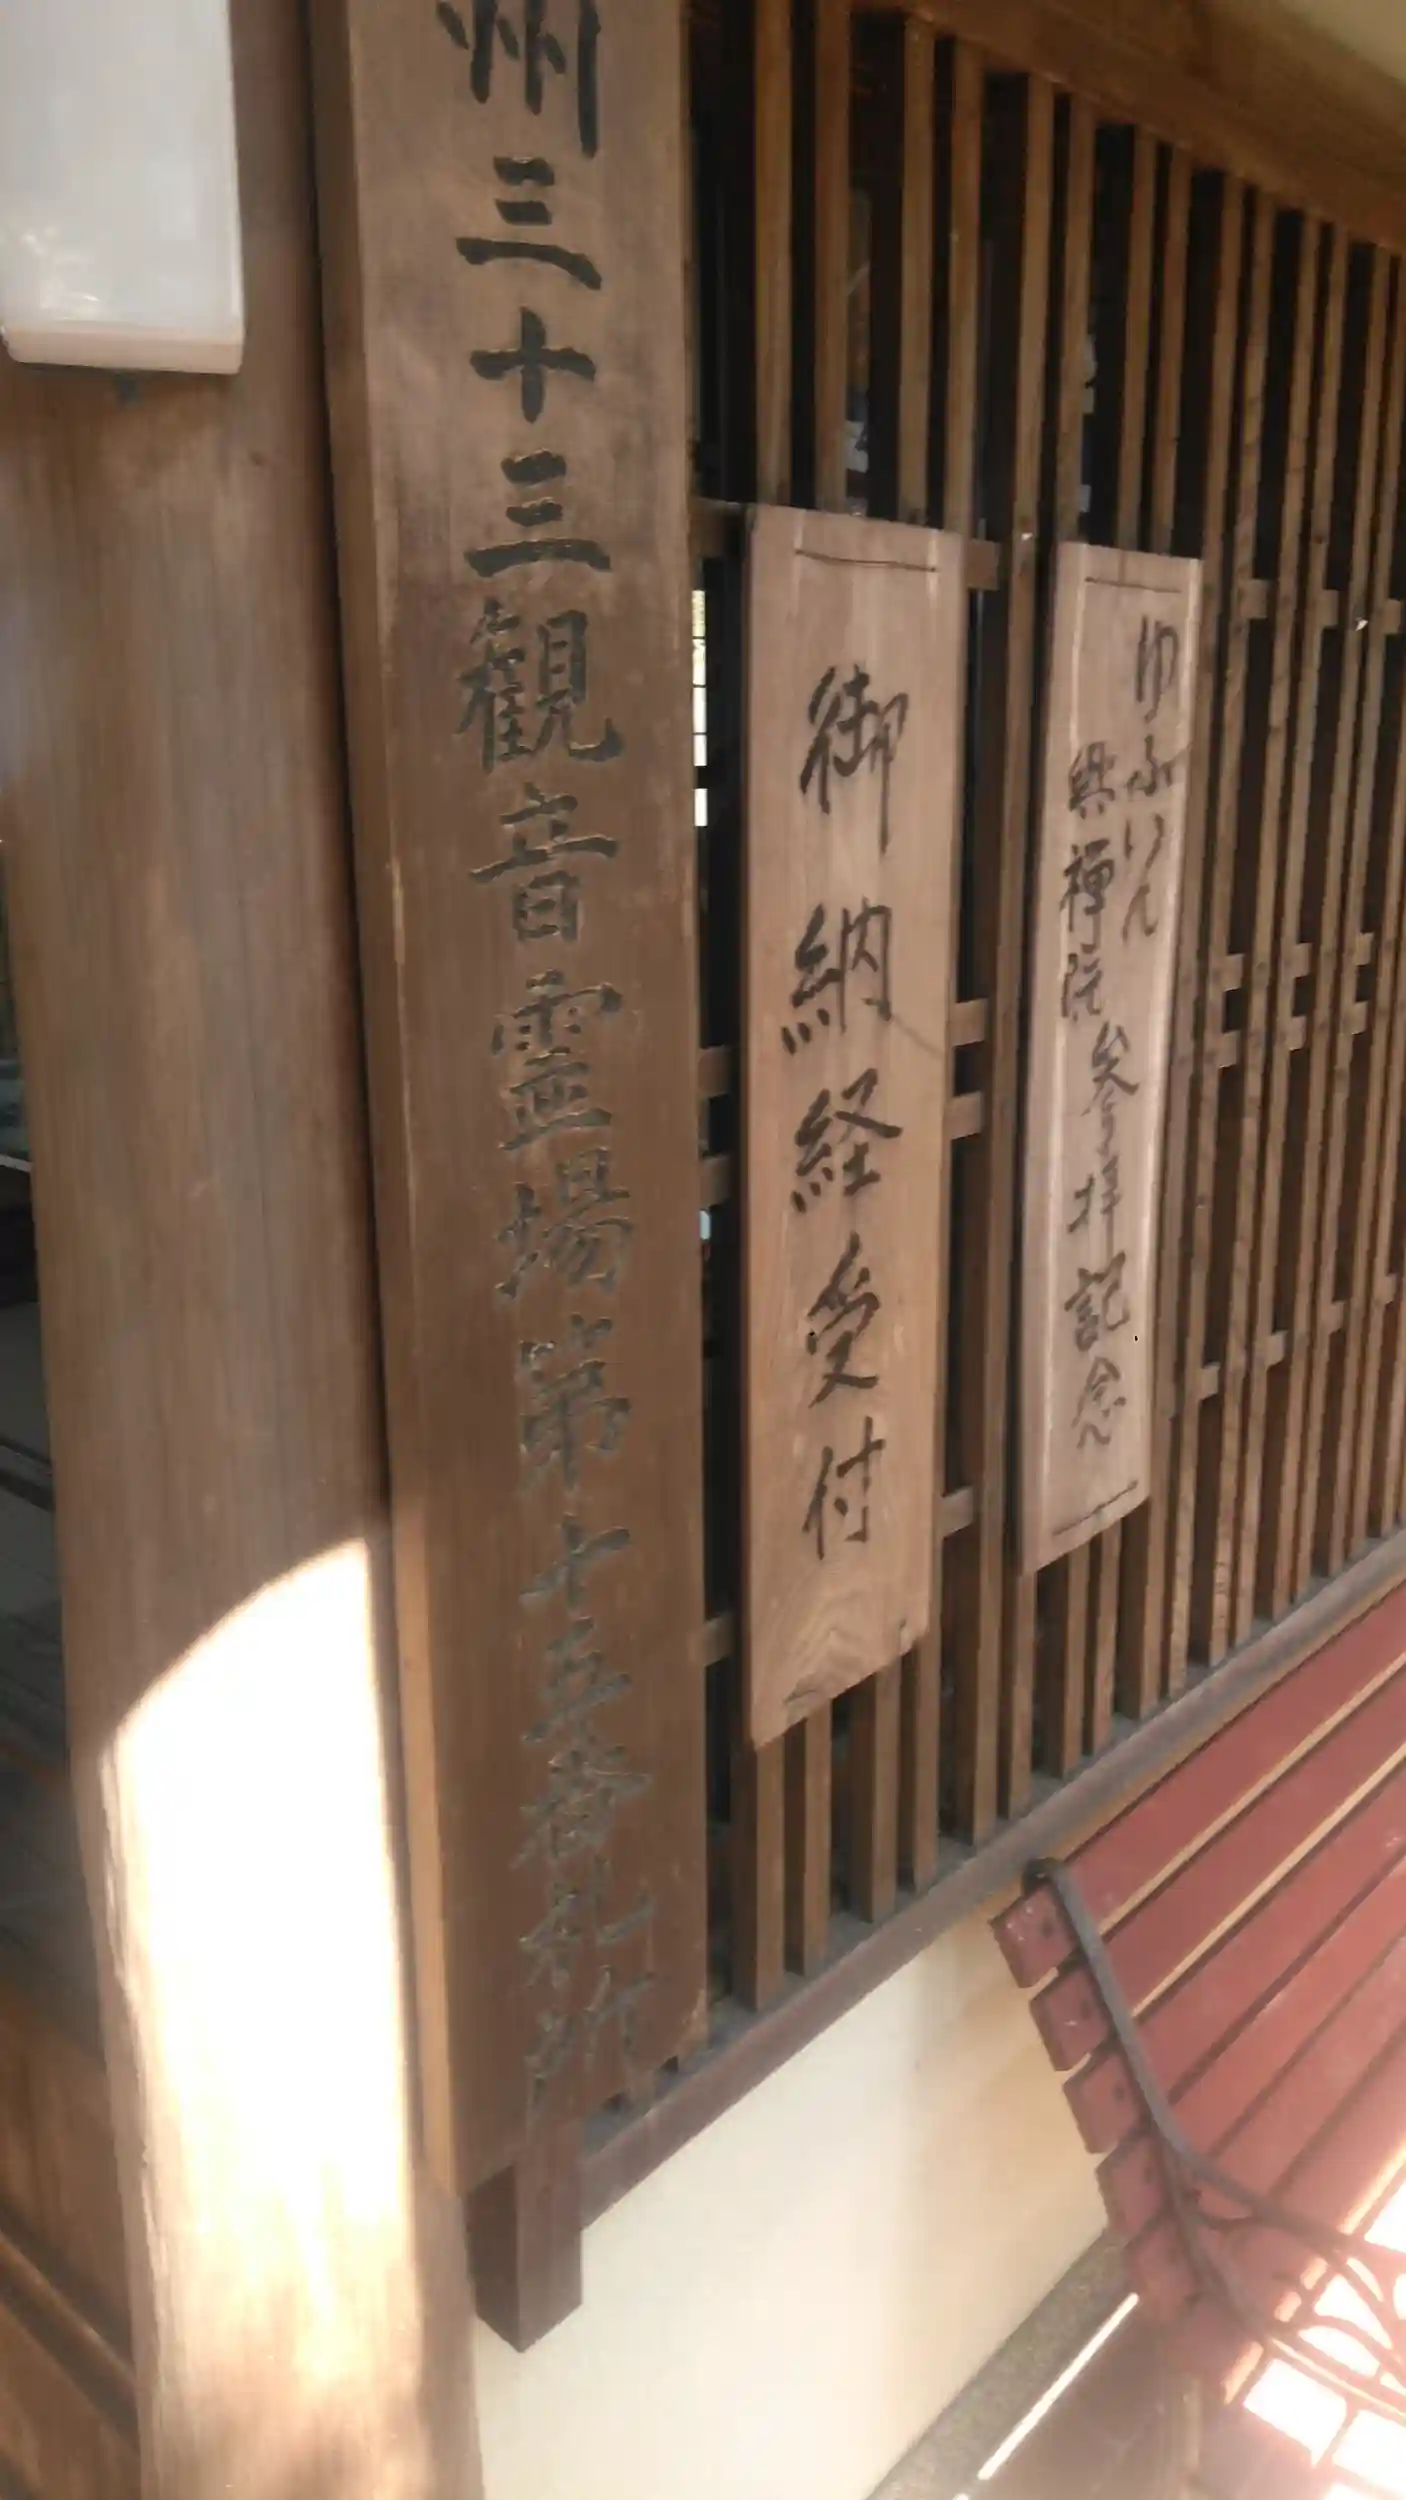 ゆふいん
興禅院参拝記念
御納経受付
州三十三観音霊場第十五番札所